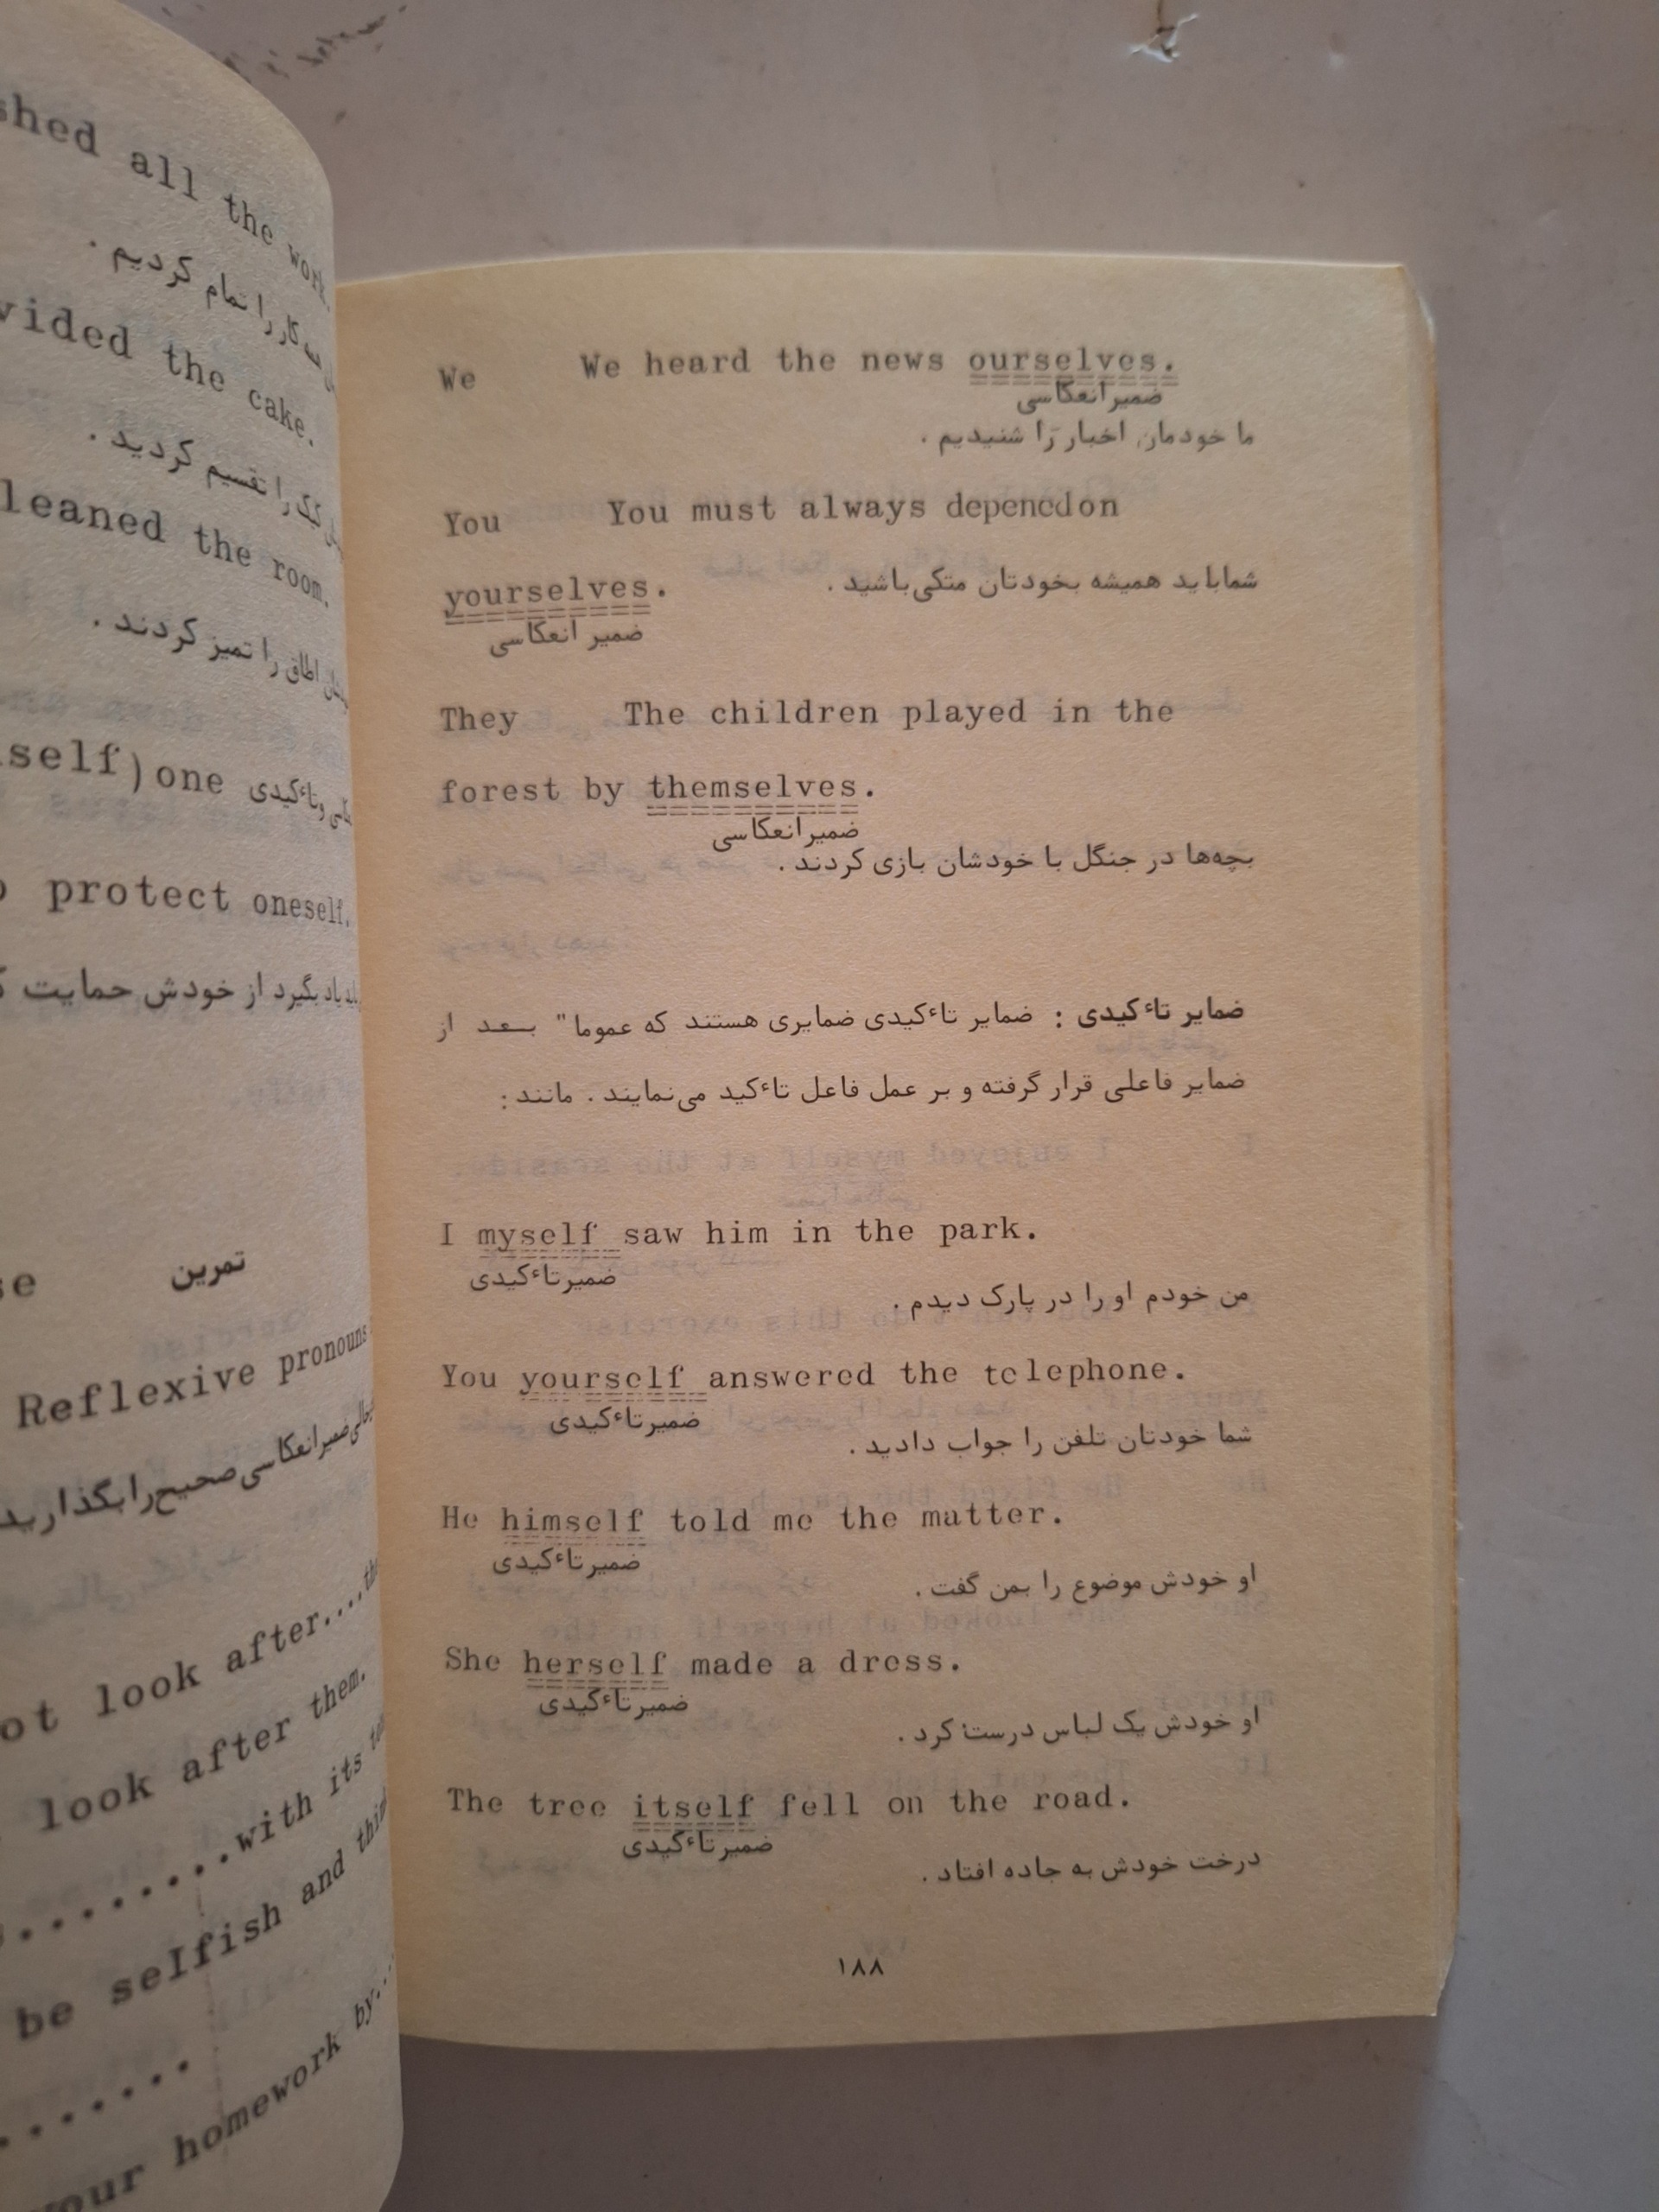 shed all the work.
کار را تمام کردیم .
vided the cake.
کیک را تقسیم کردید .
leaned the room.
اطاق را تمیز کردند .
self) one وتاٴکیدی
protect oneself.
یاد بگیرد از خودش حمایت
se تمرین
Reflexive pronouns
ضمیر انعکاسی صحیح را بگذارید
ot look after....the
look after them.
........with its
be selfish and thin
.......
your homework by...
We We heard the news ourselves.
ضمیر انعکاسی
ما خودمان اخبار را شنیدیم .
You You must always depencdon
yourselves. شما باید همیشه بخودتان متکی باشید .
ضمیر انعکاسی
They The children played in the
forest by themselves.
ضمیر انعکاسی
بچه‌ها در جنگل با خودشان بازی کردند .
ضمایر تاٴکیدی : ضمایر تاٴکیدی ضمایری هستند که عموما" بعد از
ضمایر فاعلی قرار گرفته و بر عمل فاعل تاٴکید می‌نمایند . مانند :
I myself saw him in the park.
ضمیر تاٴکیدی
من خودم او را در پارک دیدم .
You yourself answered the telephone.
ضمیر تاٴکیدی
شما خودتان تلفن را جواب دادید .
He himself told me the matter.
ضمیر تاٴکیدی
او خودش موضوع را بمن گفت .
She herself made a dress.
ضمیر تاٴکیدی
او خودش یک لباس درست کرد .
The tree itself fell on the road.
ضمیر تاٴکیدی
درخت خودش به جاده افتاد .
۱۸۸